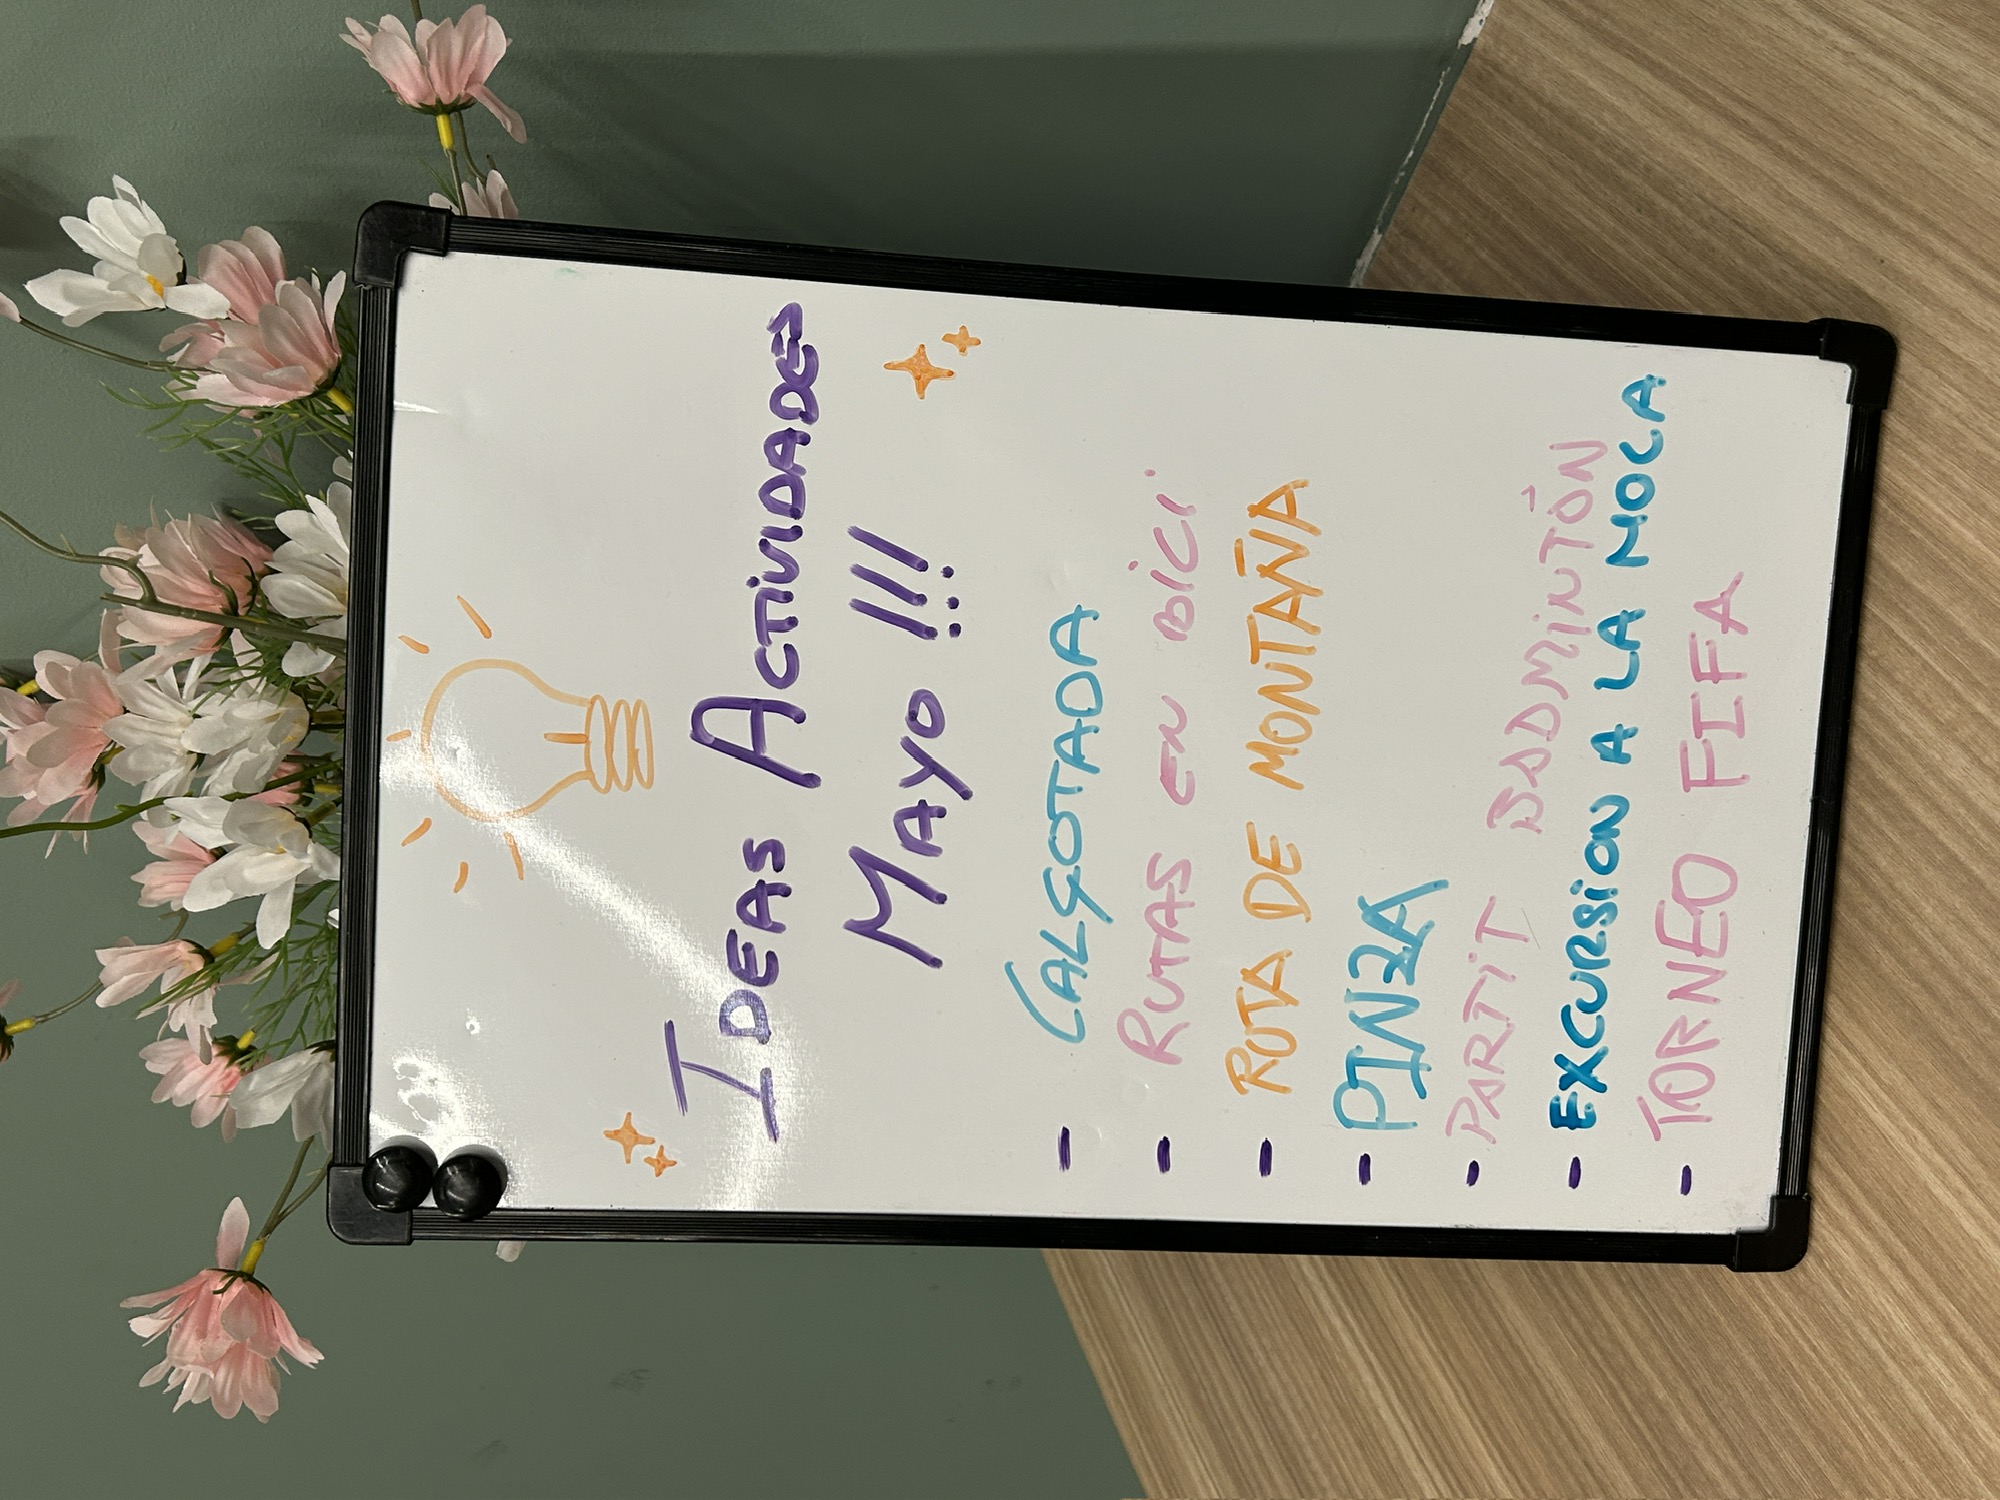 IDEAS ACTIVIDADES
MAYO !!!
- CALÇOTADA
- RUTAS EN BICI
- RUTA DE MONTAÑA
- PINZA
- PARTIT BADMINTÓN
- EXCURSION A LA MOLA
- TORNEO FIFA